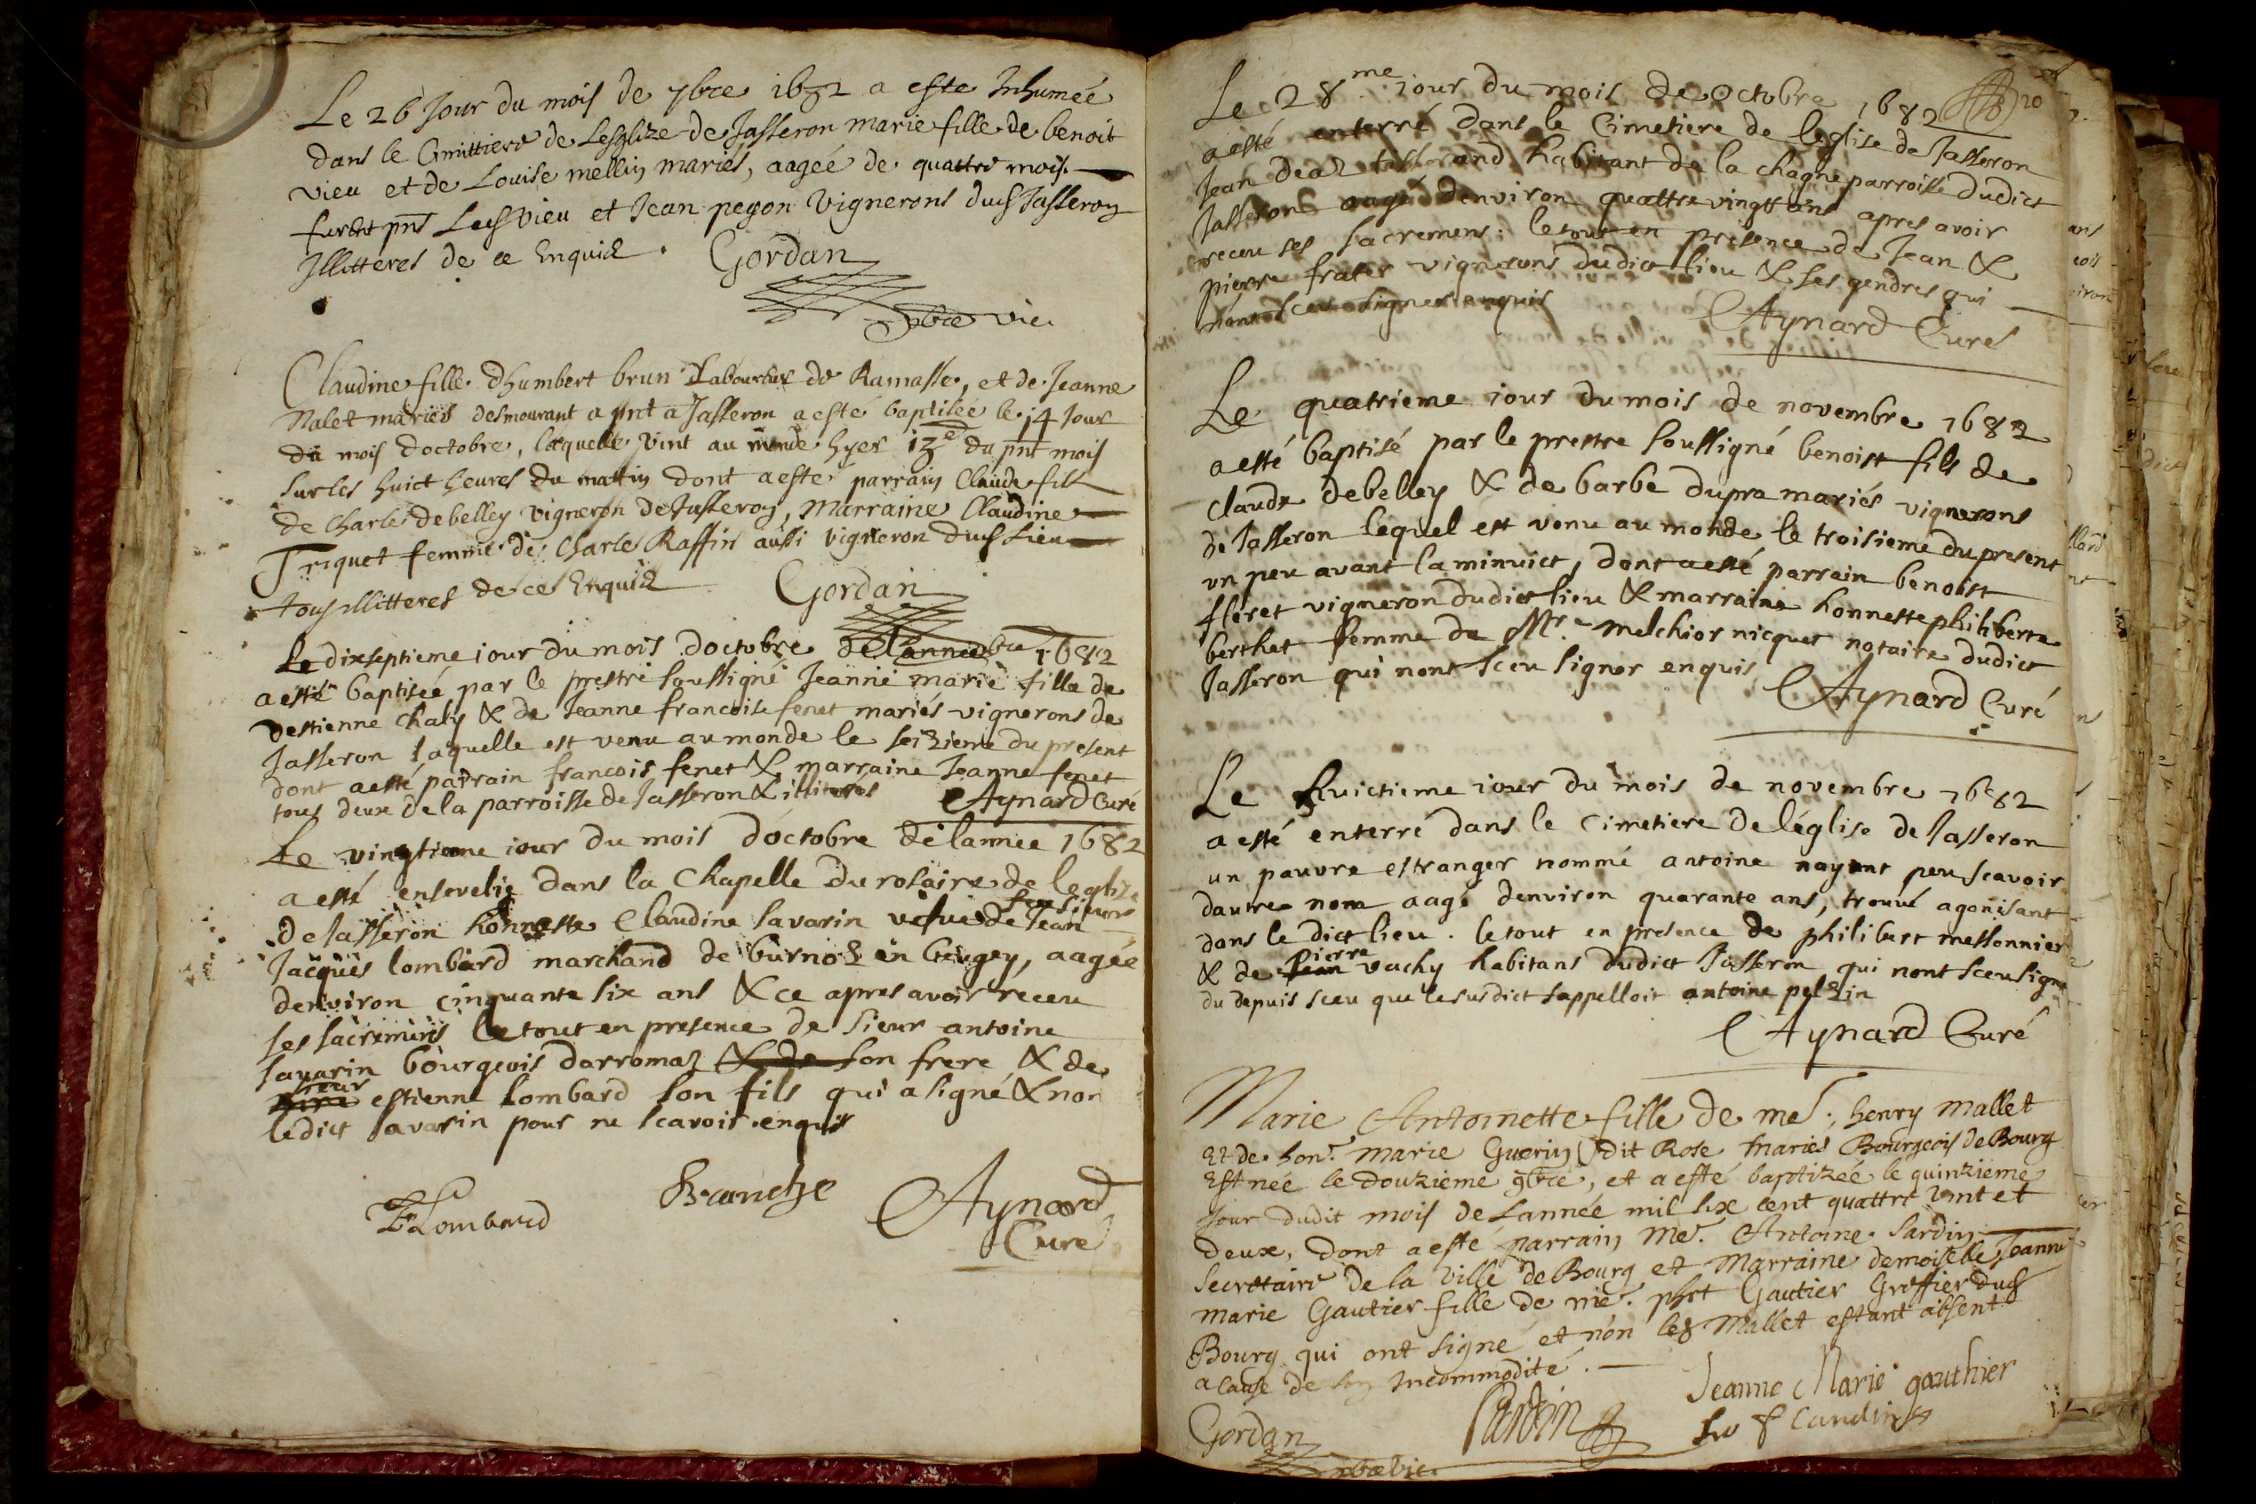 Le 26 Jour du mois de 7bre 1682 a este Inhumeé
dans le Cmittiere de Lesglize de Jasseron marie fille de benoit
vieu et de Louise mellin mariés, aageé de quattre mois
furent pnts Led vieu et Jean peyon Vignerons dud Jasseron
Illitteres de ce Enquis. Gordan
pbre vic.
Claudine fille dhumbert brun Laboureur de Ramasse, et de Jeanne
Nalet mariés desmourant a pnt a Jasseron a esté baptisée le 14 Jour
du mois doctobre, laquelle vint au monde hyer 13e du pnt mois
sur les huict heures du mattin dont a esté parrain Claude fils
de Charles debelley vigneron de Jasseron, Marraine Claudine
Triquet femme de Charle Raffin aussi vigneron dud Lieu
tous illitteres de ce Enquis Gordan
Le dixseptieme iour du mois doctobre de lannee 1682
a esté baptiseé par le prestre soussigné Jeanne marie fille de
destienne chaly & de Jeanne francoise fenet mariés vignerons de
Jasseron laquelle est venu au monde le seizieme du present
dont a esté parrain francois fenet & marraine Jeanne fenet
tous deux de la parroisse de Jasseron & illiterés Aynard Curé
Le vingtieme iour du mois doctobre de lannee 1682
a esté ensevelie dans la Chapelle du rosaire de leglize
feu sieur
de Jasseron honneste Claudine savarin vefue de Jean
Jacques lombard marchand de burnoz en beugey, aageé
denviron cinquante six ans & ce apres avoir receu
ses sacremens le tout en presence de sieur antoine
savarin bourgeois darromaz & de son frere & de
sieur
estienne lombard son fils qui a signé & non
ledict savarin pour ne scavoir enquis
E Lombard Branche Aynard
Curé
Le 28me iour du mois de octobre 1682 20
a esté enterré dans le Cimetiere de leglise de Jasseron
Jean habitant de la chagne parroisse dudict
Jasseron aagé denviron quattre vingtt ans apres avoir
receu ses sacremens: le tout en presence de Jean &
pierre frater vignerons dudict lieu & ses gendres qui
nont sceu signer enquis Aynard Curé
Le quatrieme iour du mois de novembre 1682
a esté baptisé par le prestre soussigné benoist fils de
claude debelley & de barbe dupra mariés vignerons
de Jasseron lequel est venu au monde le troisieme du present
vn peu avant la minuict, dont a esté parrain benoist
floret vigneron dudict lieu & marraine honneste philiberte
berthet femme de Mre melchior nicquet notaire dudict
Jasseron qui nont sceu signer enquis Aynard Curé
Le huictieme iour du mois de novembre 1682
a esté enterré dans le cimetiere de léglise de Jasseron
un pauvre estranger nommé antoine nayant peu scavoir
dautre nom aagé denviron quarante ans, trouué agonisant
dans le dict lieu. le tout en presence de philibert messonnier
pierre
& de Jean vachy habitans dudict Jasseron qui nont sceu signer
du depuis sceu que lesusdict sappelloit antoine pelzin
Aynard Curé
Marie Antoinette fille de mes. henry mallet
et de hon. marie Guerin dit Rose mariés Bourgeois de Bourg
Est neé le douzieme 9bre, et a esté baptizeé le quinzieme
Jour dudit mois de Lannée mil six cent quattre vint et
deux, dont a esté parrain me. Antoine Sardin
Secretaire de la Ville de Bourg et Marraine demoiselle Jeanne
marie Gautier fille de me. phrt Gautier Greffier dud
Bourg qui ont signé et non led Mallet estant absent
a cause de son Incommodité.
Jeanne Marie gauthier
Gordan Sardin
pbre vic.